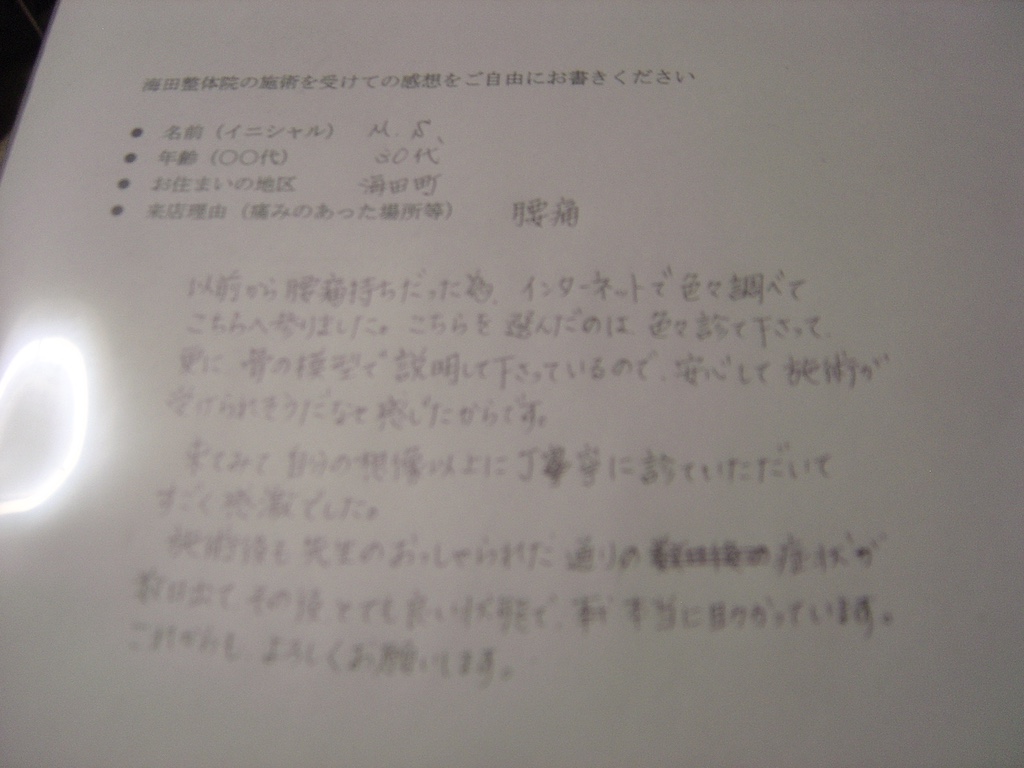 海田整体院の施術を受けての感想をご自由にお書きください
● 名前（イニシャル） M.S.
● 年齢（〇〇代） 30代
● お住まいの地区 海田町
● 来店理由（痛みのあった場所等） 腰痛
以前から腰痛持ちだった為、インターネットで色々調べて
こちらへ参りました。こちらを選んだのは、色々診て下さって、
更に、骨の模型で説明して下さっているので、安心して施術が
受けられそうだなと感じたからです。
来てみて自分の想像以上に丁寧に診ていただいて
すごく感激でした。
施術後も先生のおっしゃられた通りの症状が
数日出て、その後とても良い状態で、本当に助かっています。
これからも、よろしくお願いします。